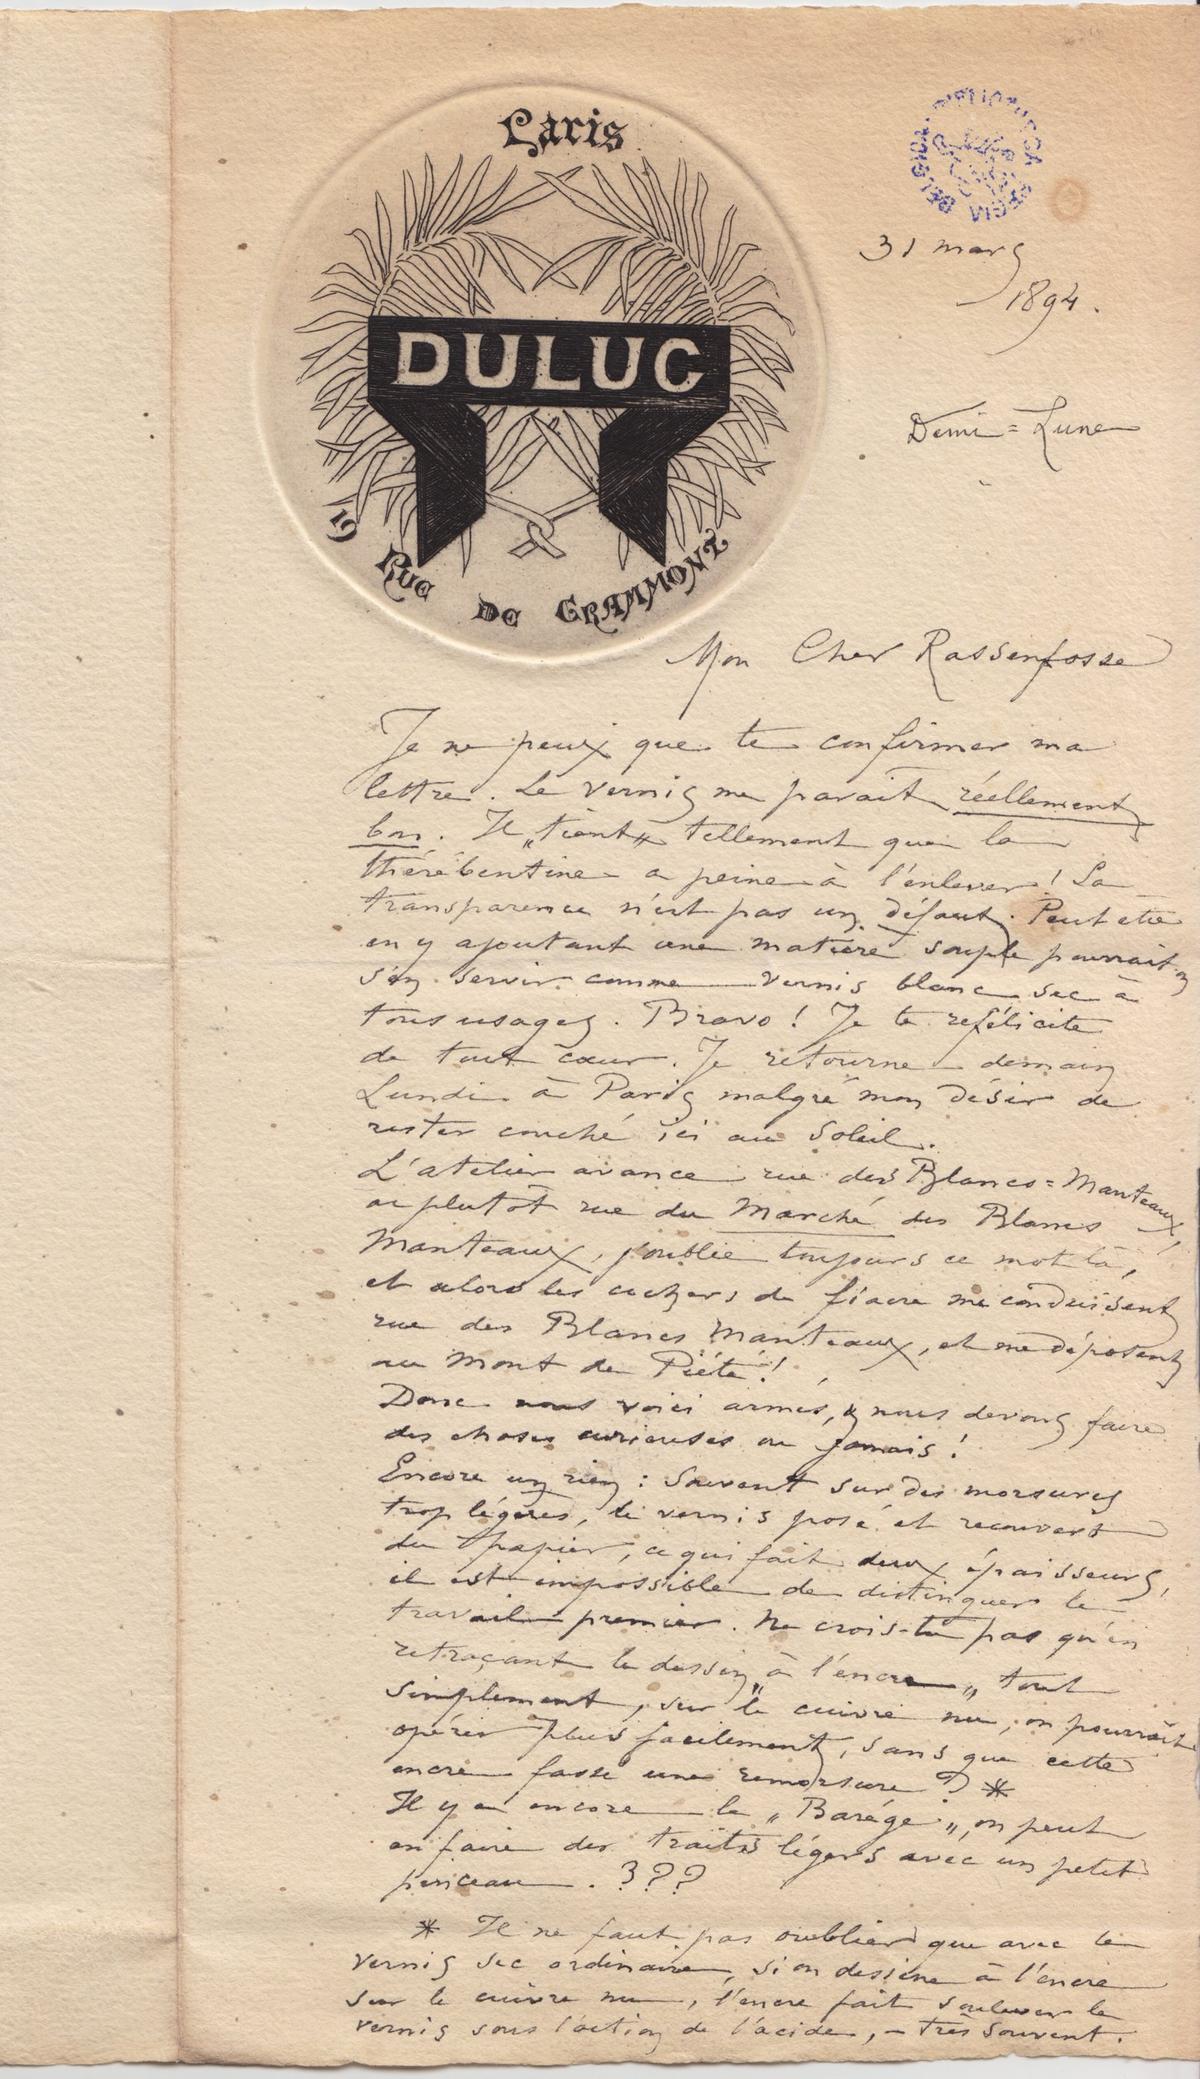 Paris
DULUC
19 Rue de Grammont
BIBLIOTHECA REGIA BELGICA
31 mars
1894.
Demi=Lune
Mon Cher Rassenfosse
Je ne peux que te confirmer ma
lettre. Le vernis me parait réellement
bon. Il „tient„ tellement que la
thérébentine a peine à l'enlever! La
transparence n'est pas un défaut. Peut etre
en y ajoutant une matière souple pourrait on
s'en servir comme vernis blanc sec à
tous usages. Bravo! Je te refélicite
de tout cœur. Je retourne demain
Lundi à Paris malgré mon désir de
rester couché ici au soleil.
L'atelier avance rue des Blancs=Manteaux,
ou plutôt rue du Marché des Blancs
Manteaux, j'oublie toujours ce mot là,
et alors les cochers de fiacre me conduisent
rue des Blancs Manteaux, et me déposent
au Mont de Piété!
Donc nous voici armés, & nous devons faire
des choses curieuses ou jamais!
Encore un rien: Souvent sur des morsures
trop légères, le vernis posé et recouvert
du papier, ce qui fait deux épaisseurs,
il est impossible de distinguer le
travail premier. Ne crois-tu pas qu'en
retraçant le dessin „à l'encre„ tout
simplement, sur le cuivre nu, on pourrait
opérer plus facilement, sans que cette
encre fasse une remorsure? *
Il y a encore le „Barège„, on peut
en faire des traits légers avec un petit
pinceau. ???
* Il ne faut pas oublier que avec le
vernis sec ordinaire, si on dessine à l'encre
sur le cuivre nu, l'encre fait soulever le
vernis sous l'action de l'acide, – très souvent.